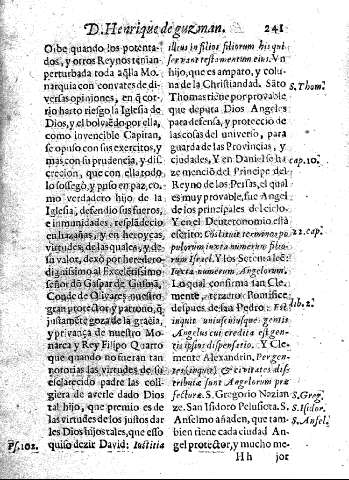 D. Henrique de guzman. 241
Oibe quando los potenta-
dos, y otros Reynos tenian
perturbada toda aq̃lla Mo-
narquia con convates de di-
versas opiniones, en q̃ cor-
rio harto riesgo la Iglesia de
Dios, y el bolvio por ella,
como invencible Capitan,
se opuso con sus exercitos, y
mas con su prudencia, y dis-
crecion, que con ella todo
lo sossegò, y puso en paz, co-
mo verdadero hijo de la
Iglesia, defendio sus fueros,
e inmunidades, resplãdecio
en hazañas, y en heroycas
virtudes, de las quales, y de
su valor, dexò por heredero
dignissimo al Excelẽtissimo
señor dõ Gaspar de Gusmã,
Conde de Olivares nuestro
gran protector, y patron, q̃
justamẽte goza de la gracia,
y privança de nuestro Mo-
narca y Rey Filipo Quarto
que quando no fueran tan
notorias las virtudes de su
esclarecido padre las coli-
giera de averle dado Dios
tal hijo, que premio es de
las virtudes de los justos dar
les Dios hijos tales, que esso
quiso dezir David: Iustitia
Ps. 102.
illius in filios filiorum his qui
servant testamentum eius. Vn
hijo, que es amparo, y colu-
na de la Christiandad. Sãto
Thomas tiene por provable
que deputa Dios Angeles
para defensa, y proteccio de
las cosas del universo, para
guarda de las Provincias, y
ciudades, Y en Daniel se ha
ze menciõ del Principe del
Reyno de los Persas, el qual
es muy provable, fue Angel
de los principales del cielo.
Y en el Deuteronomio està
escrito: Cõstituit terminos po
pulorum iuxta numerum filio-
rum Israel. Y los Setenta leẽ:
Iuxta numerum Angelorum.
Lo qual confirma san Cle-
mente, tercero Pontifice
despues de san Pedro: Est
inquit uniuscuiusque gentis
Angelus cui credita est gen-
tis ipsius dispensatio. Y Cle-
mente Alexandrin, Per gen-
tes (inquit) & civitates dis-
tributæ sunt Angelorum præ
fecturæ. S. Gregorio Nazian
ze. San Isidoro Pelusiota. S.
Anselmo añaden, que tam-
bien tiene cada ciudad An-
gel protector, y mucho me-
S. Thom.
cap. 10.
22. cap.
lib. 2.
S. Greg.
S. Isidor.
S. Ansel.
H h jor